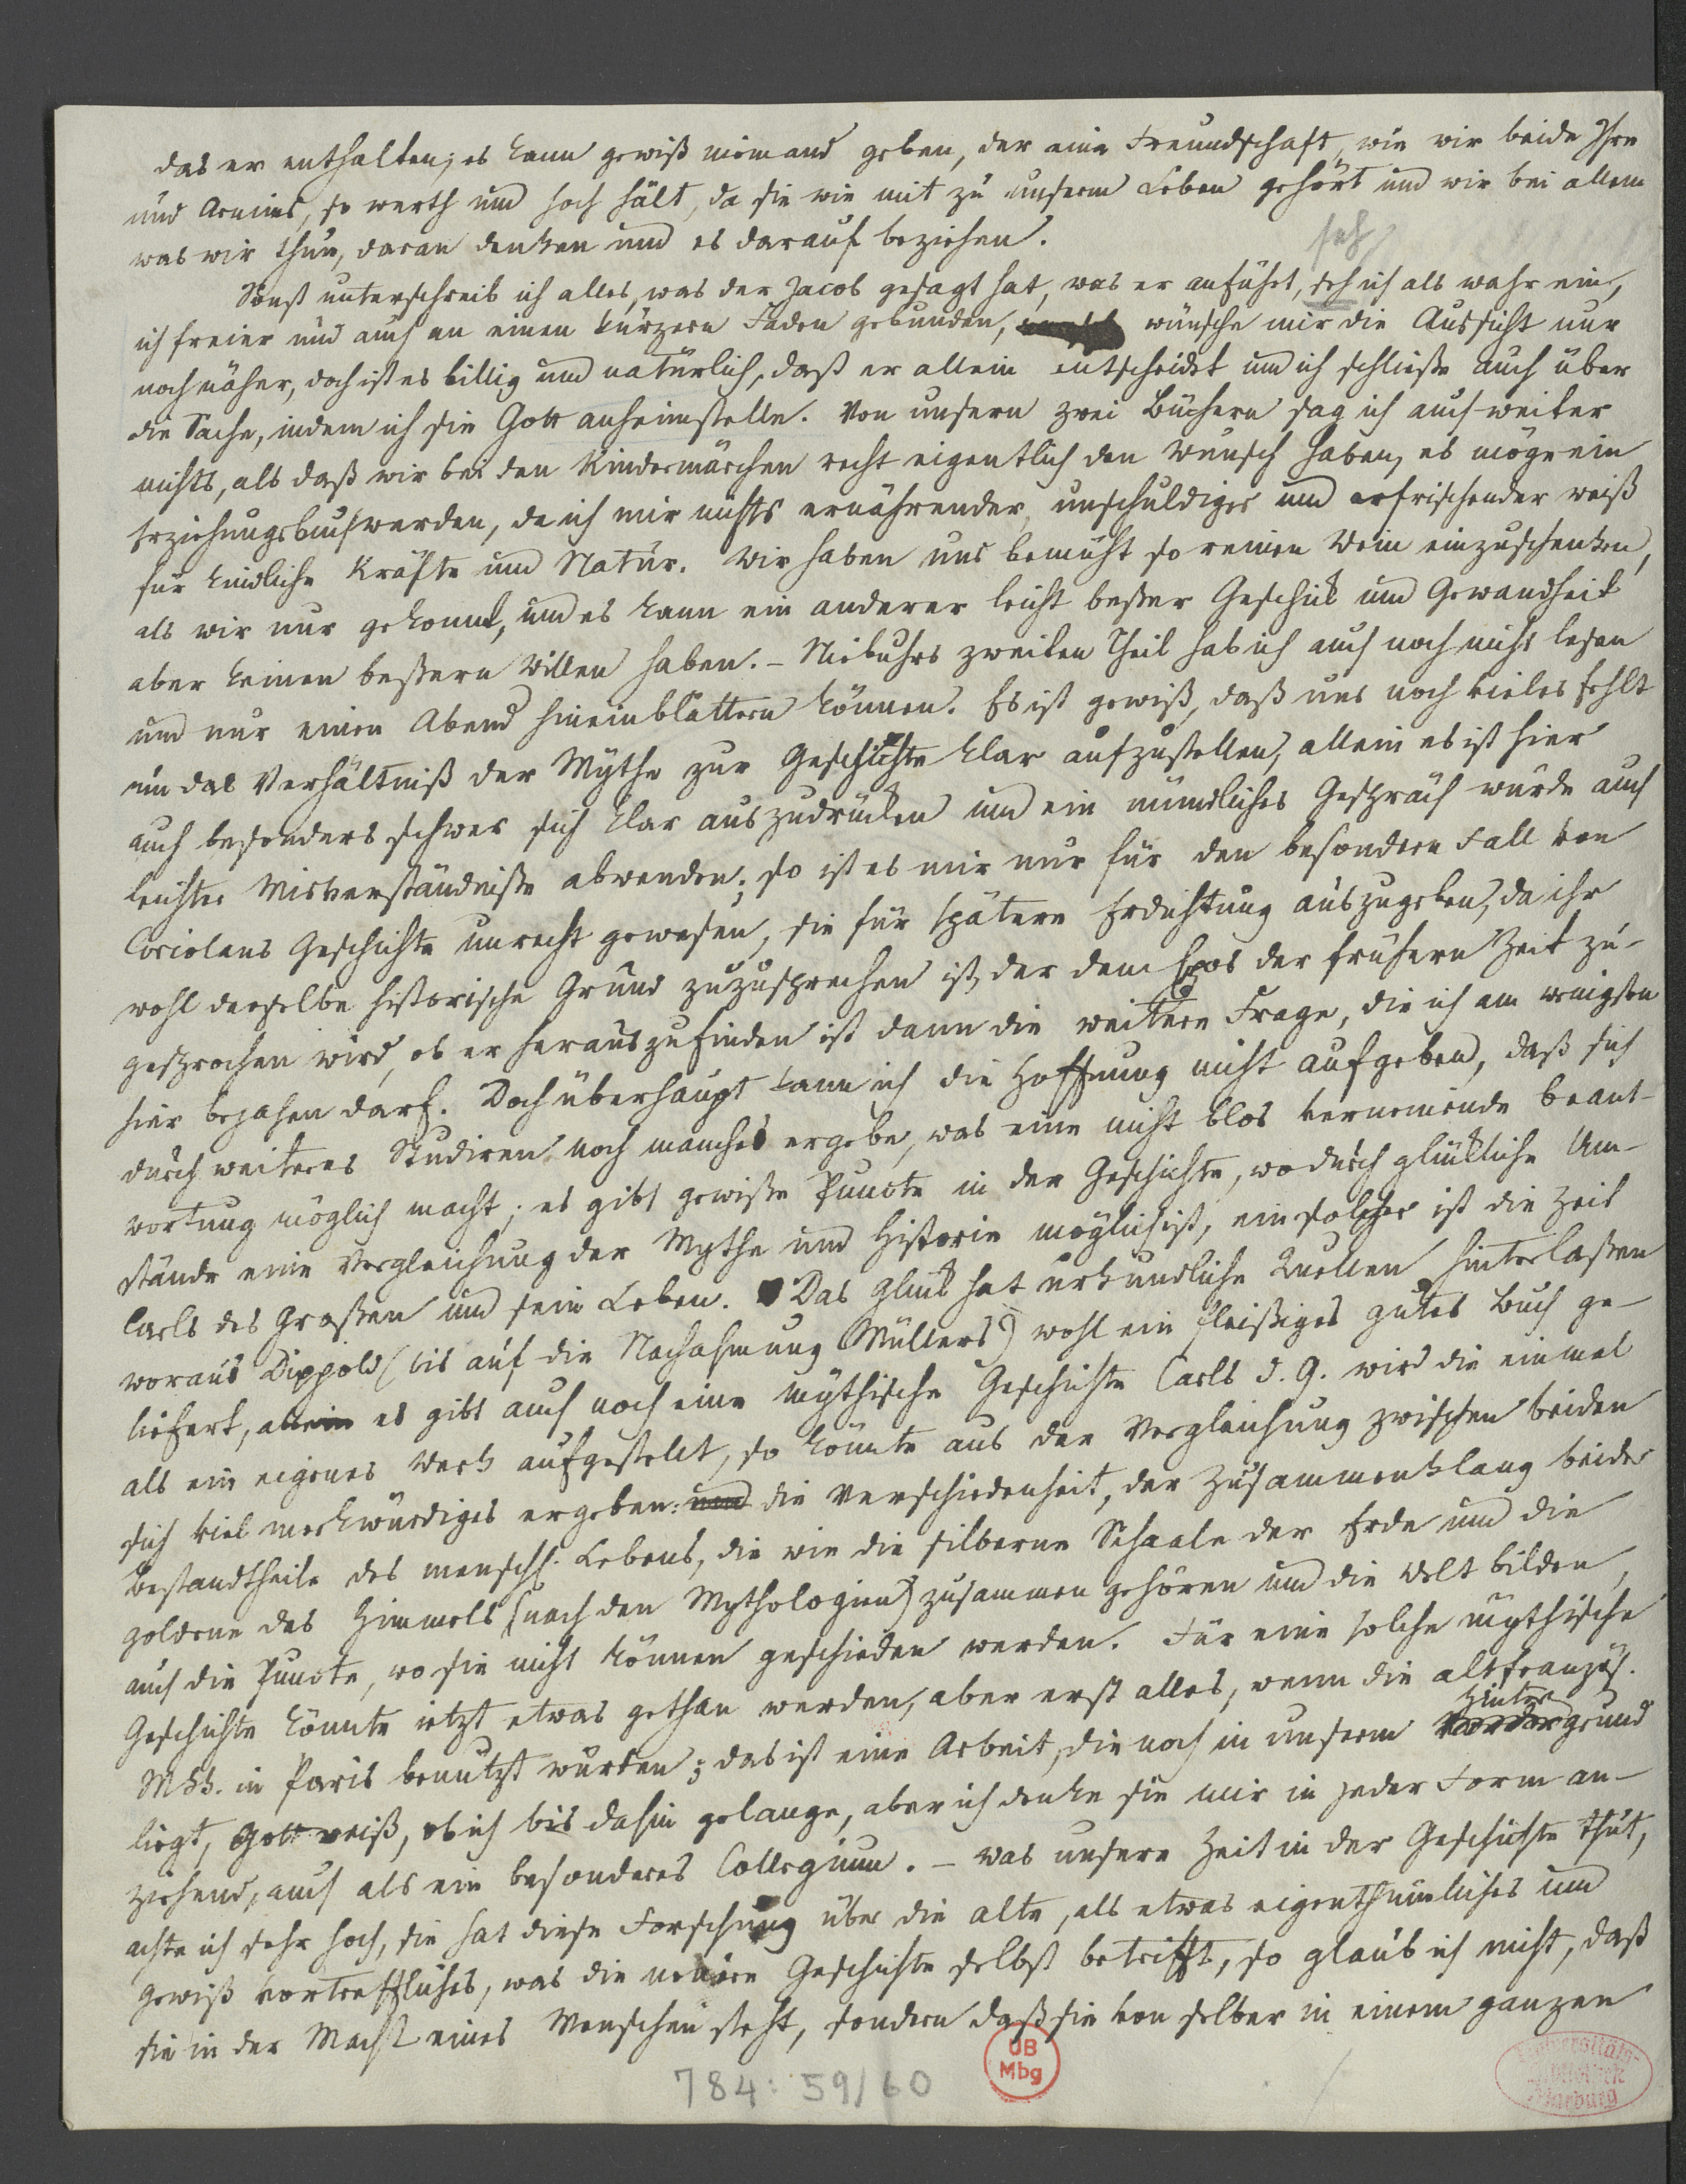 das er enthalten; es kann gewiß niemand geben, der eine Freundschaft, wie wir beide Ihre
und Arnims, so werth und hoch hält, da sie wie mit zu unserm Leben gehört und wir bei allem
was wir thun, daran denken und es darauf beziehen.
seh
Sonst unterschreib ich alles, was der Jacob gesagt hat, was er anführt, seh ich als wahr ein,
ich freier und auch an einen kürzern Faden gebunden, wünsche mir die Aussicht nur
noch näher, doch ist es billig und natürlich, daß er allein entscheidet und ich schließe auch über
die Sache, indem ich sie Gott anheimstelle. Von unsern zwei Büchern sag ich auch weiter
nichts, als daß wir bei den Kindermärchen recht eigentlich den Wunsch haben, es möge ein
Erziehungsbuch werden, da ich mir nichts ernährender, unschuldiger und erfrischender weiß
für kindliche Kräfte und Natur. Wir haben uns bemüht so reinen Wein einzuschenken,
als wir nur gekonnt, und es kann ein anderer leicht beßer Geschick und Gewandheit
aber keinen beßern Willen haben. – Niebuhrs zweiten Theil hab ich auch noch nicht lesen
und nur einen Abend hineinblättern können. Es ist gewiß, daß uns noch vieles fehlt
um das Verhältniß der Mythe zur Geschichte klar aufzustellen, allein es ist hier
auch besonders schwer sich klar auszudrücken und ein mündliches Gespräch würde auch
leichter Misverständniße abwenden; so ist es mir nur für den besondern Fall von
Coriolans Geschichte unrecht gewesen, sie für spätere Erdichtung auszugeben, da ihr
wohl derselbe historische Grund zuzusprechen ist, der dem Epos der frühern Zeit zu-
gesprochen wird, ob er herauszufinden ist dann die weitere Frage, die ich am wenigsten
hier bejahen darf. Doch überhaupt kann ich die Hoffnung nicht aufgeben, daß sich
durch weiteres Studiren noch manches ergebe, was eine nicht blos verneinende beant-
wortung möglich macht; es gibt gewiße Puncte in der Geschichte, wo durch glückliche Um-
stände eine Vergleichung der Mythe und Historie möglich ist, ein solcher ist die Zeit
Carls des Großen und sein Leben. Das Glück hat urkundliche Quellen hinterlaßen
woraus Dippold (bis auf die Nachahmung Müllers) wohl ein fleißiges gutes Buch ge-
liefert, allein es gibt auch noch eine mythische Geschichte Carls d. G. wird die einmal
als ein eigenes Werk aufgestellt, so könnte aus der Vergleichung zwischen beiden
sich viel merkwürdiges ergeben: und die Verschiedenheit, der Zusammenklang beider
Bestandtheile des menschl. Lebens, die wie die silberne Schaale der Erde und die
goldene des Himmels (nach den Mythologien) zusammen gehören und die Welt bilden,
auch die Puncte, wo sie nicht können geschieden werden. Für eine solche mythische
Geschichte könnte jetzt etwas gethan werden, aber erst alles, wenn die altfranzös.
Hinter
Mss. in Paris benutzt würden; das ist eine Arbeit, die noch in unserm Vordergrund
liegt, Gott weiß, ob ich bis dahin gelange, aber ich denke sie mir in jeder Form an-
ziehend, auch als ein besonderes Collegium. – Was unsere Zeit in der Geschichte thut,
achte ich sehr hoch, sie hat diese Forschung über die alte, als etwas eigenthümliches und
gewiß vortreffliches, was die neuere Geschichte selbst betrifft, so glaub ich nicht, daß
sie in der Macht eines Menschen steht, sondern daß sie von selber in einem ganzen
784: 59/60
UB
Mbg
Universitäts-
Bibliothek
Marburg